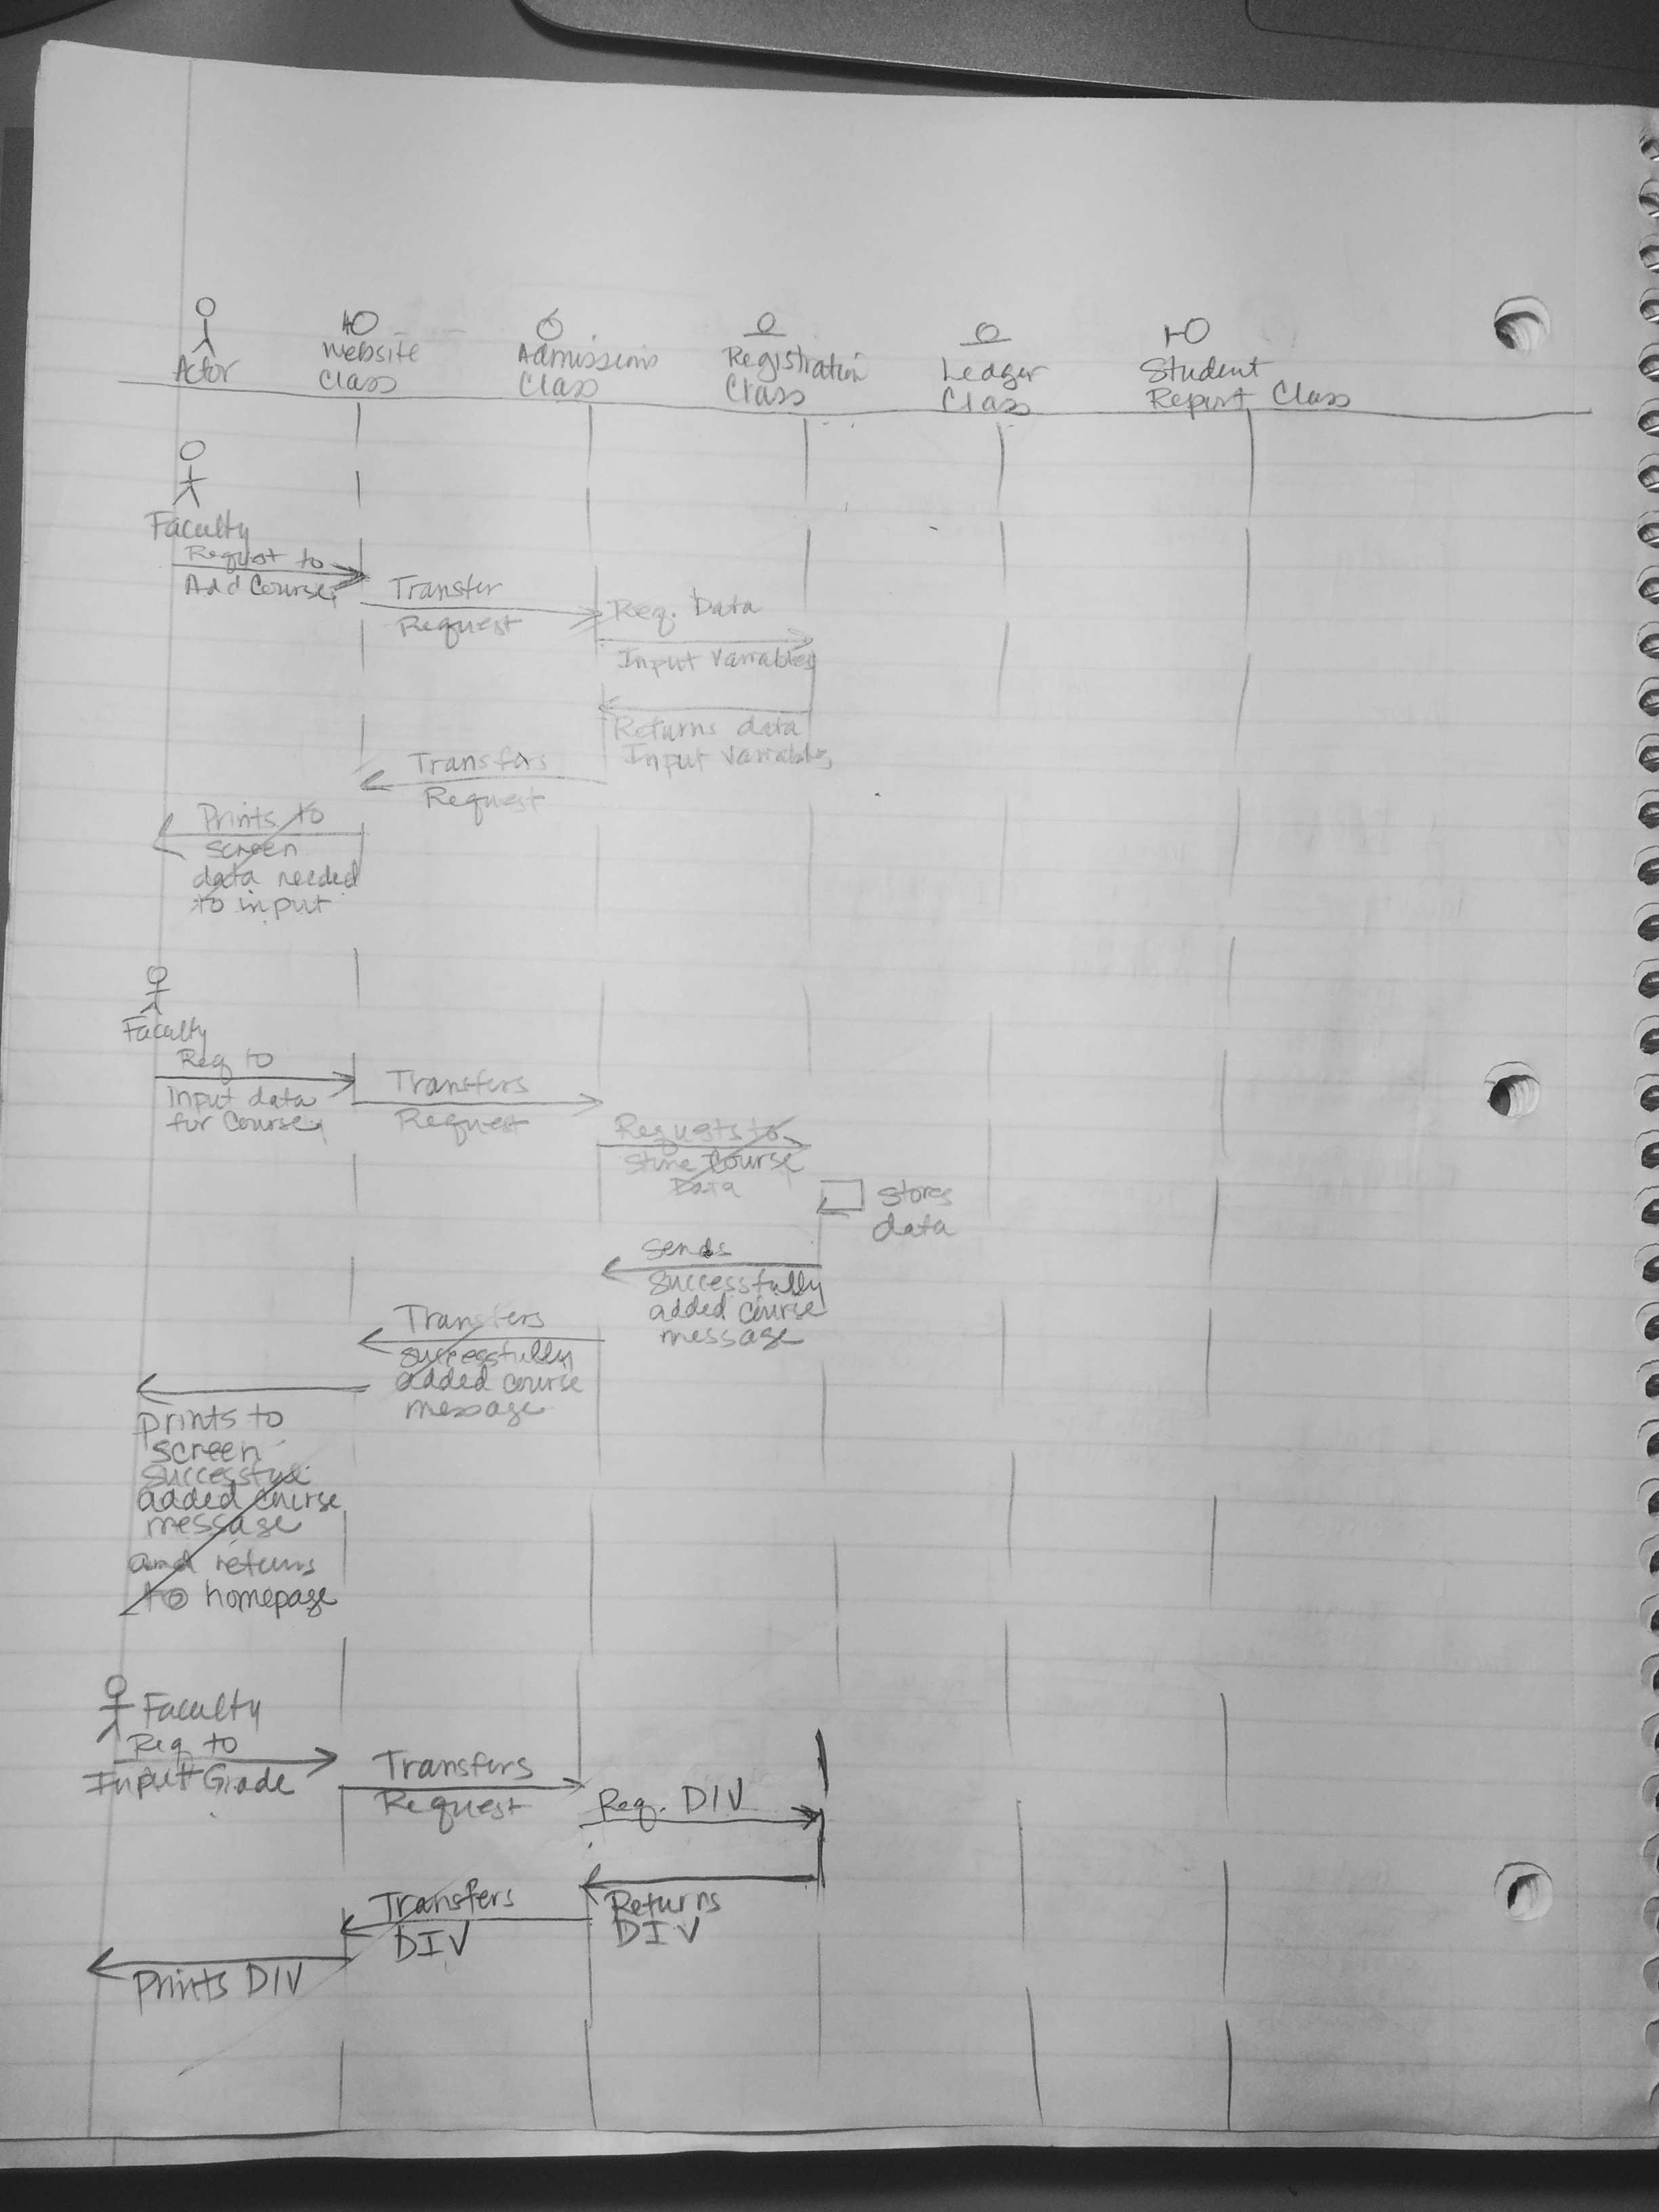 Actor
Website
Class
Admissions
Class
Registration
Class
Ledger
Class
Student
Report Class
Faculty
Request to
Add Course
Transfer
Request
Req. Data
Input Variables
Returns data
Input Variables
Transfers
Request
Prints to
screen
data needed
to input
Faculty
Req to
input data
for Course
Transfers
Request
Requests to
Store Course
Data
Stores
data
Sends
Successfully
added course
message
Transfers
successfully
added course
message
prints to
screen
successful
added course
message
and returns
to homepage
Faculty
Req to
Input Grade
Transfers
Request
Req. DIV
Returns
DIV
Transfers
DIV
Prints DIV